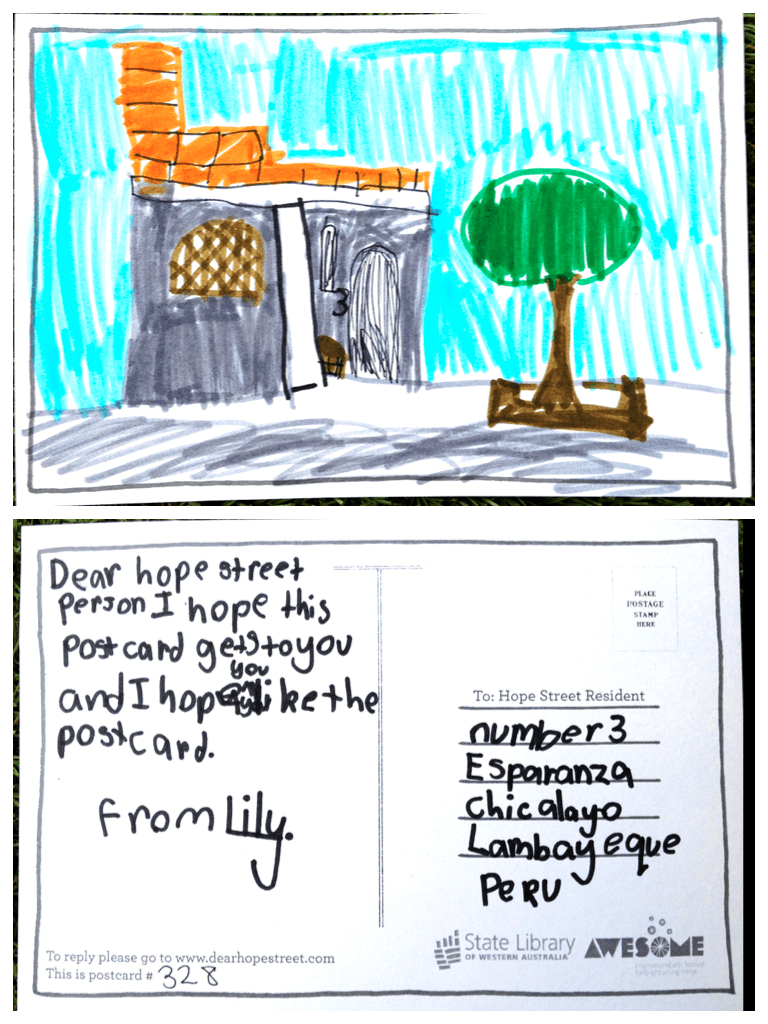 3
Dear hope street
person I hope this
postcard gets to you
you
and I hope like the
postcard.
From Lily.
PLACE
POSTAGE
STAMP
HERE
To: Hope Street Resident
number 3
Esparanza
Chicalayo
Lambayeque
PERU
To reply please go to www.dearhopestreet.com
This is postcard # 328
State Library
OF WESTERN AUSTRALIA
AWESOME